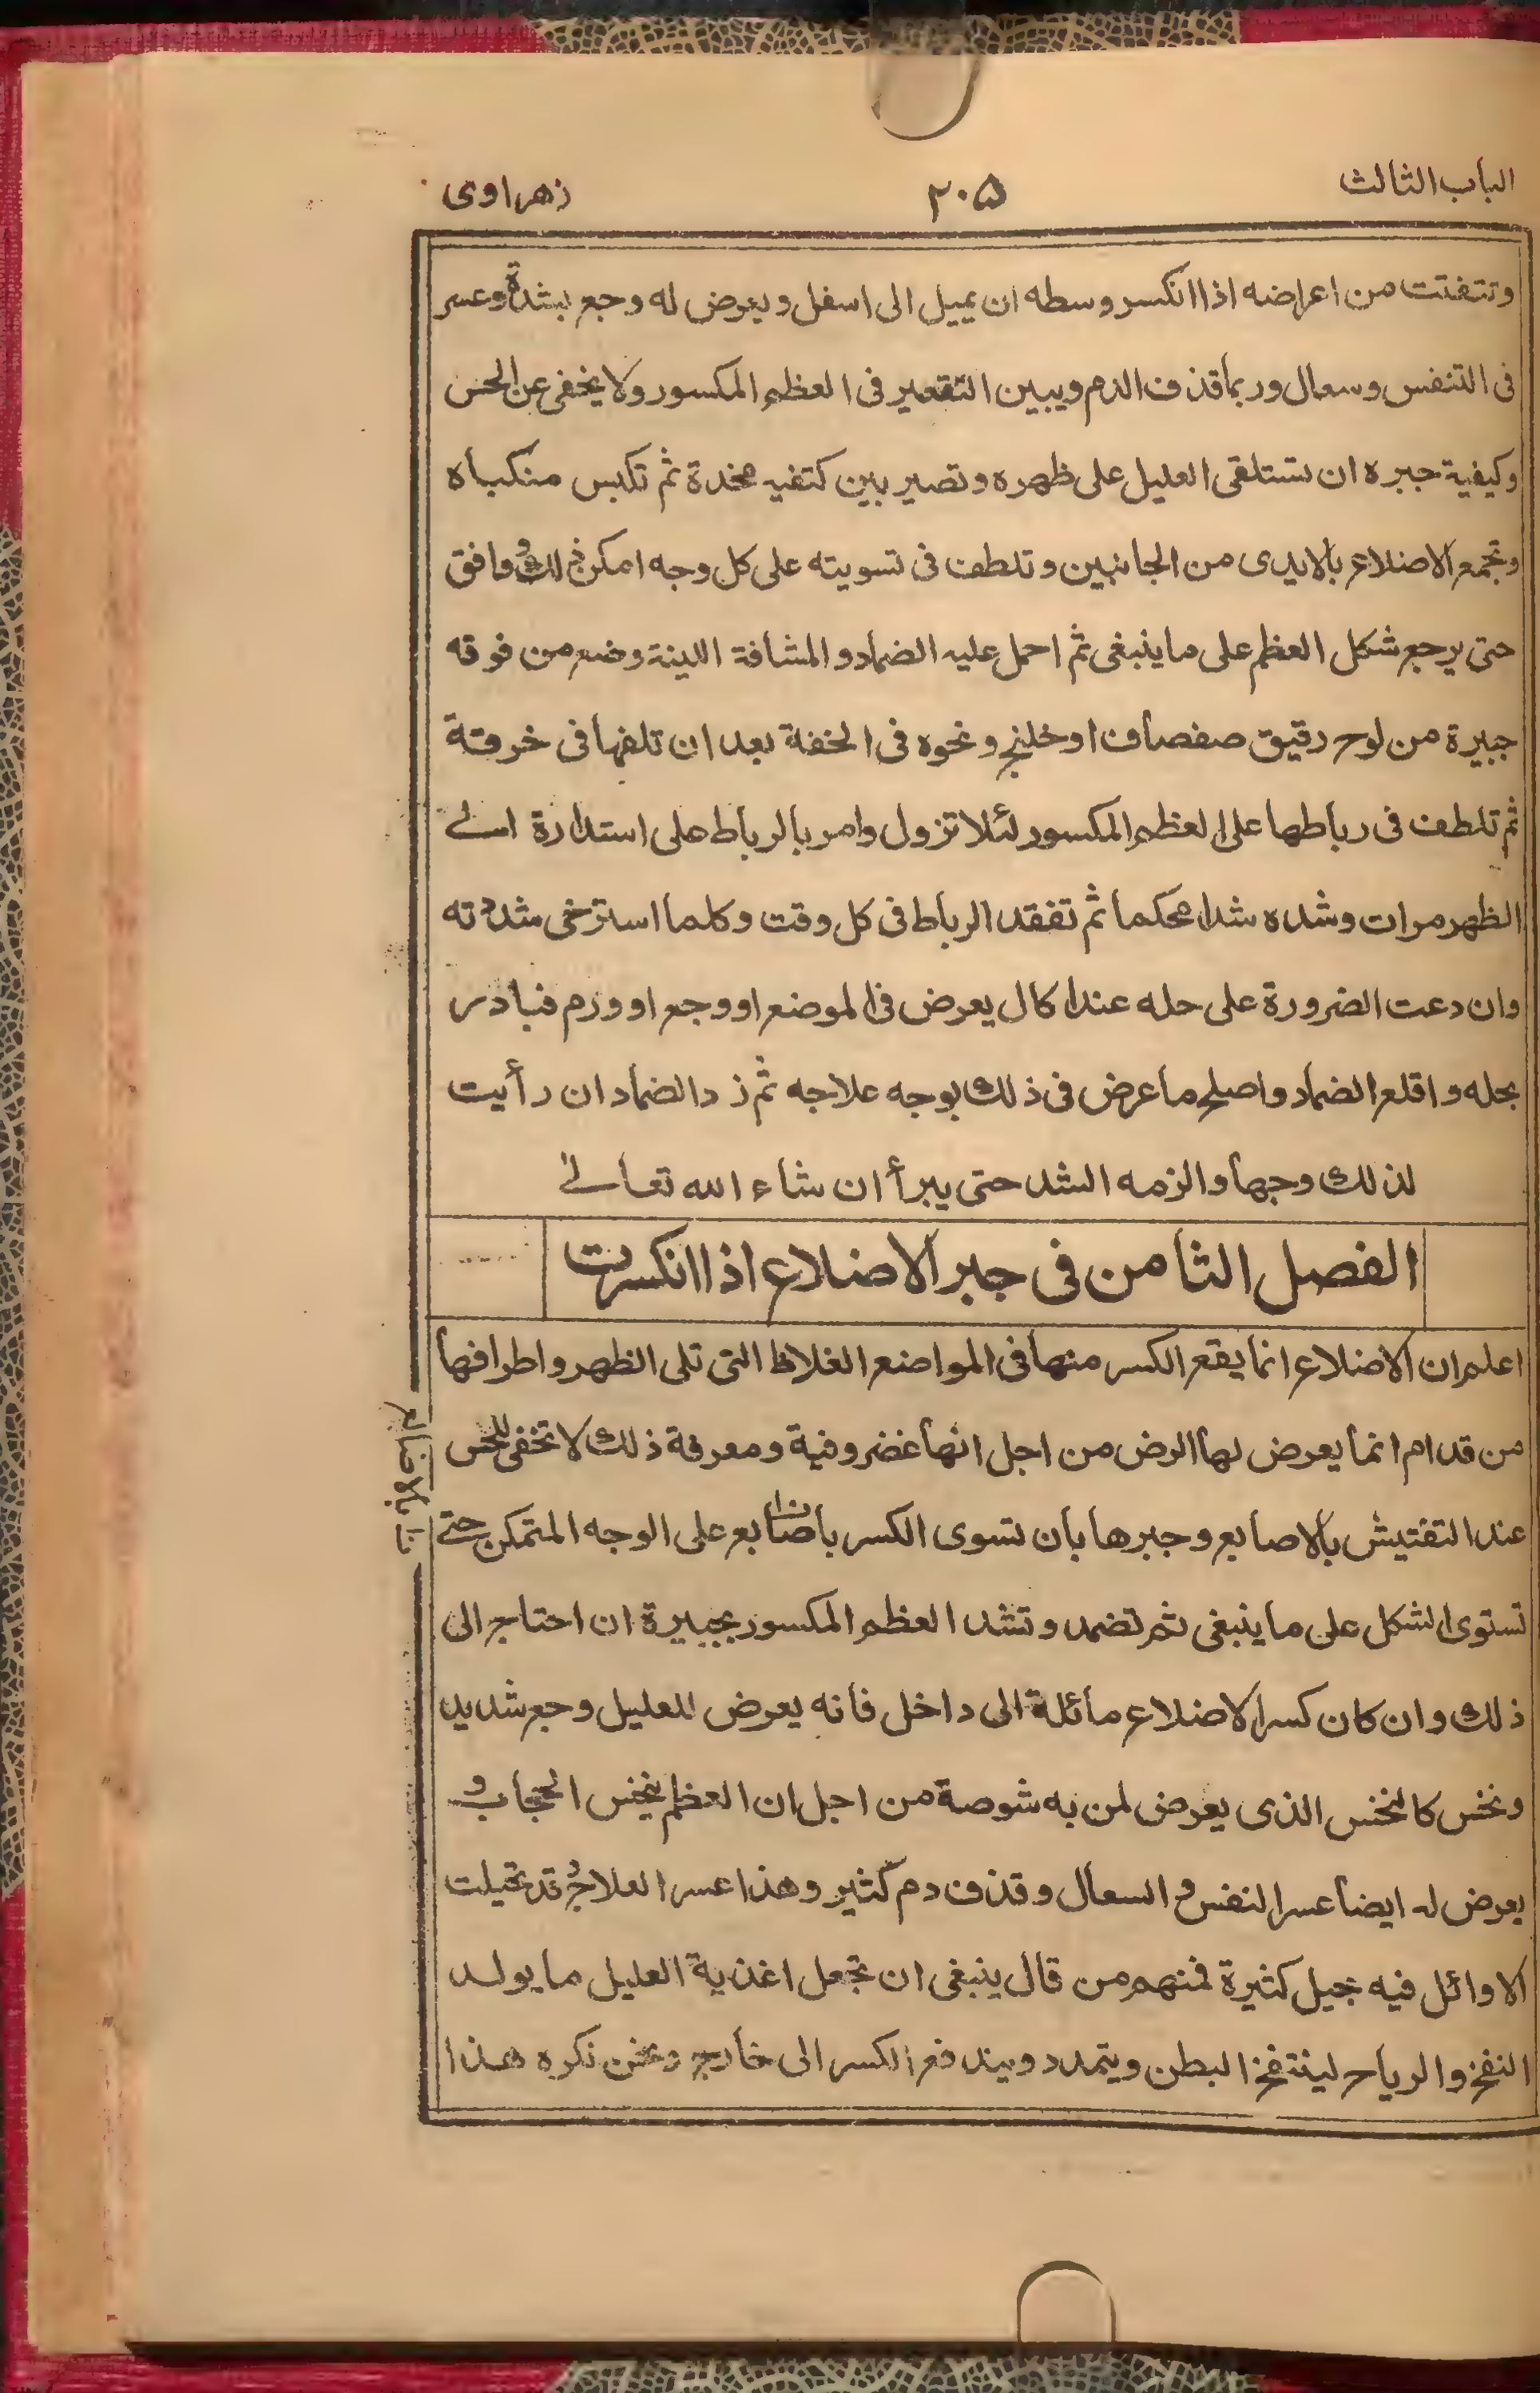 الباب الثالث ٢٠٥ زهراوى
وتتفتت من اعراضه اذا انكسر وسطه ان يميل الى اسفل ويعرض له وجع بشدة وعسر
فى التنفس وسعال وربما قذف الدم ويبين التقعير فى العظم المكسور ولا يخفى عن الحس
وكيفية جبره ان تستلقى العليل على ظهره وتصير بين كتفيه مخدة ثم تكبس منكباه
وتجمع الاضلاع بالايدى من الجانبين وتلطف فى تسويته على كل وجه امكن ذلك ووافق
حتى يرجع شكل العظم على ما ينبغى ثم احمل عليه الضماد والمشافة اللينة وضع من فوقه
جبيرة من لوح رقيق صفصاف او خلنج ونحوه فى الخفة بعد ان تلفها فى خرقة
ثم تلطف فى رباطها على العظم المكسور لئلا تزول وامر بالرباط على استدارة الى
الظهر مرات وشده شدا محكما ثم تفقد الرباط فى كل وقت وكلما استرخى شددته
وان دعت الضرورة على حله عند اكال يعرض فى الموضع او وجع او ورم فبادر
بحله واقلع الضماد واصلح ما عرض فى ذلك بوجه علاجه ثم زد الضماد ان رأيت
لذلك وجها والزمه الشد حتى يبرأ ان شاء الله تعالى
الفصل الثامن فى جبر الاضلاع اذا انكسرت
اعلم ان الاضلاع انما يقع الكسر منها فى المواضع الغلاظ التى تلى الظهر واطرافها
من قدام انما يعرض لها الرض من اجل انها غضروفية ومعرفة ذلك لا تخفى للحس
عند التفتيش بالاصابع وجبرها بأن تسوى الكسر بأصابع على الوجه المتمكن حتى
تستوى الشكل على ما ينبغى ثم تضمد وتشد العظم المكسور بجبيرة ان احتاج الى
ذلك وان كان كسر الاضلاع مائلة الى داخل فانه يعرض للعليل وجع شديد
ونخس كالنخس الذى يعرض لمن به شوصة من اجل ان العظم ينخس الحجاب و
يعرض له ايضا عسر النفس و السعال وقذف دم كثير وهذا عسر العلاج وقد تحيلت
الاوائل فيه بحيل كثيرة فمنهم من قال ينبغى ان تجعل اغذية العليل ما يولد
النفخ والرياح لينتفخ البطن ويتمدد ويندفع الكسر الى خارج ونحن نكره هذا